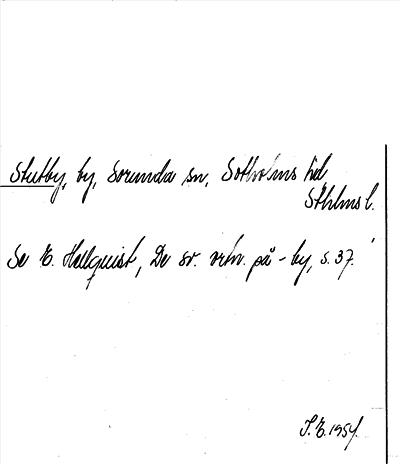 Stutby, by, Sorunda sn, Sotholms hd
Sthlms l.
Se E. Hellquist, De sv. ortn. på -by, s. 37.
S.E. 1954.